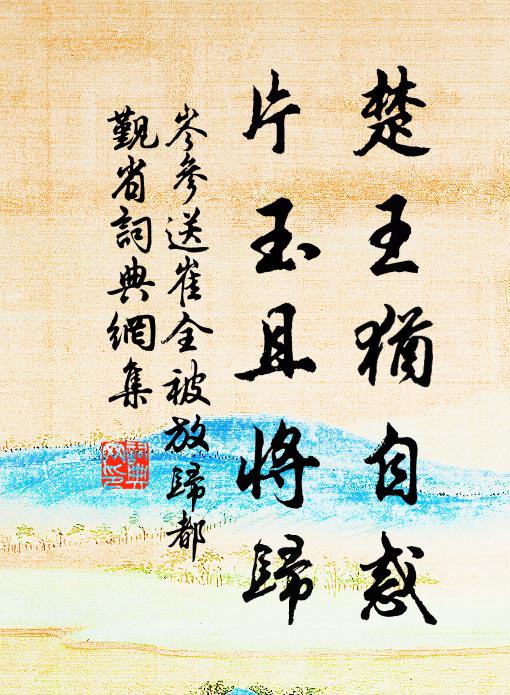 楚王猶自惑
片玉且將歸
岑參送崔全被放歸都
觀省詞典網集